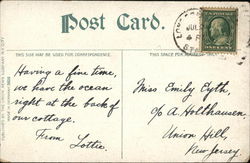 Post Card.
THIS SIDE MAY BE USED FOR CORRESPONDENCE.
Having a fine time,
we have the ocean
right at the back of
our cottage.
From Lottie.
Miss Emily Eyth,
c/o A. Holthausen,
Union Hill,
New Jersey